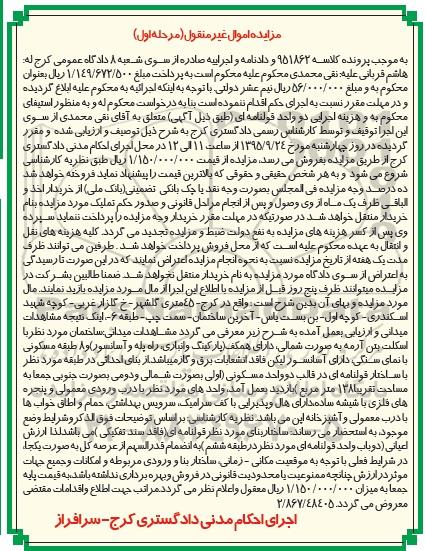 مزایده اموال غیر منقول (مرحله اول)
به موجب پرونده کلاسه ۹۵۱۸۶۲ و دادنامه و اجراییه صادره از سوی شعبه ۸ دادگاه عمومی کرج له:
هاشم قربانی علیه: نقی محمدی محکوم علیه محکوم است به پرداخت مبلغ ۱/۱۴۹/۶۷۲/۵۰۰ ریال بعنوان
محکوم به و مبلغ ۵۶/۰۰۰/۰۰۰ ریال نیم عشر دولتی. با توجه به اینکه اجرائیه به محکوم علیه ابلاغ گردیده
و در مهلت مقرر نسبت به اجرای حکم اقدام ننموده است بنا به درخواست محکوم له و به منظور استیفای
محکوم به و هزینه اجرایی دو واحد قولنامه ای (طبق ذیل آگهی) متعلق به آقای نقی محمدی از سوی
این اجرا توقیف و توسط کارشناس رسمی دادگستری کرج به شرح ذیل توصیف و ارزیابی شده و مقرر
گردیده در روز چهارشنبه مورخ ۱۳۹۵/۹/۲۴ از ساعت ۱۱ الی ۱۲ در محل اجرای احکام مدنی دادگستری
کرج از طریق مزایده بفروش می رسد، مزایده از قیمت ۱/۱۵۰/۰۰۰/۰۰۰ ریال طبق نظریه کارشناسی
شروع می شود و به هر شخص حقیقی و حقوقی که بالاترین قیمت را پیشنهاد نماید فروخته خواهد شد
ده درصد وجه مزایده فی المجلس بصورت وجه نقد یا چک بانکی تضمینی (بانک ملی) از خریدار اخذ و
الباقی ظرف یک ماه از وی وصول و پس از انجام مراحل قانونی و صدور حکم تملیک مورد مزایده بنام
خریدار منتقل خواهد شد در صورتیکه در مهلت مقرر خریدار وجه مزایده را پرداخت ننماید سپرده
وی پس از کسر هزینه های مزایده به نفع دولت ضبط و مزایده تجدید می گردد. کلیه هزینه های نقل
و انتقال به عهده محکوم علیه است که از محل فروش پرداخت خواهد شد. طرفین می توانند ظرف
مدت یک هفته از تاریخ مزایده نسبت به نحوه انجام مزایده اعتراض نمایند که در این صورت تا رسیدگی
به اعتراض از سوی دادگاه مورد مزایده به نام خریدار منتقل نخواهد شد. ضمنا طالبین شرکت در
مزایده میتوانند ظرف پنج روز قبل از مزایده با اطلاع این اجرا از مال مورد مزایده بازید نمایند. مال
مورد مزایده و بهای آن بدین شرح است: واقع در کرج- ۴۵متری گلشهر- خ گلزار غربی- کوچه شهید
اسکندری- کوچه اول- بن بست یاس- آخرین ساختمان- سمت چپ- طبقه ۶-. اینک نتیجه مشاهدات
میدانی و ارزیابی بعمل آمده به شرح زیر معرفی می گردد مشاهدات میدانی:ساختمان مورد نظر با
اسکلت بتن آرمه به صورت شمالی، دارای همکف (پارکینگ وانباری، راه پله و آسانسور)و۸ طبقه مسکونی
با نمای سنگی دارای آسانسور لیکن فاقد انشعابات برق و گاز میباشد. از بنای احداثی در طبقه مورد نظر
با ساختار قولنامه ای در قالب دوواحد مسکونی (اولی بصورت شمالی ودومی بصورت جنوبی جمعا به
مساحت تقریبا۱۳۸ متر مربع )بازدید بعمل آمد. واحد های مورد نظر با درب ورودی معمولی و پنجره
های فلزی با شیشه ساده دارای هال وپذیرایی با کف سرامیک، سرویس بهداشتی حمام و اطاق خواب ها
با درب معمولی و آشپزخانه اپن می باشد. نظریه کارشناسی: بر اساس توضیحات فوق الذکر وشرایط وضع
موجود، به استحضار می رساند ساختاربنای مورد نظر قولنامه ای (فاقد سند تفکیکی )می باشدلذا ارزش
اعیانی (دوباب واحد قولنامه ای مورد نظر درطبقه ششم )به انضمام قدرالسهم از عرصه کل به صورت یکجا،
در شرایط فعلی با توجه به موقعیت مکانی - زمانی، ساختار بنا و ورودی مربوطه و امکانات وجمیع جهات
موثر در ارزش چنانچه ممنوعیت یا محدودیت قانونی در فروش وبهره برداری نداشته باشد،به قیمت پایه
جمعا به میزان ۱/۱۵۰/۰۰۰/۰۰۰ ریال معقول واعلام نظر می گردد.مراتب جهت اطلاع واقدامات مقتضی
معروض می گردد. ۲/۸۶۷/۴۸۴۰۵
اجرای احکام مدنی دادگستری کرج- سرافراز